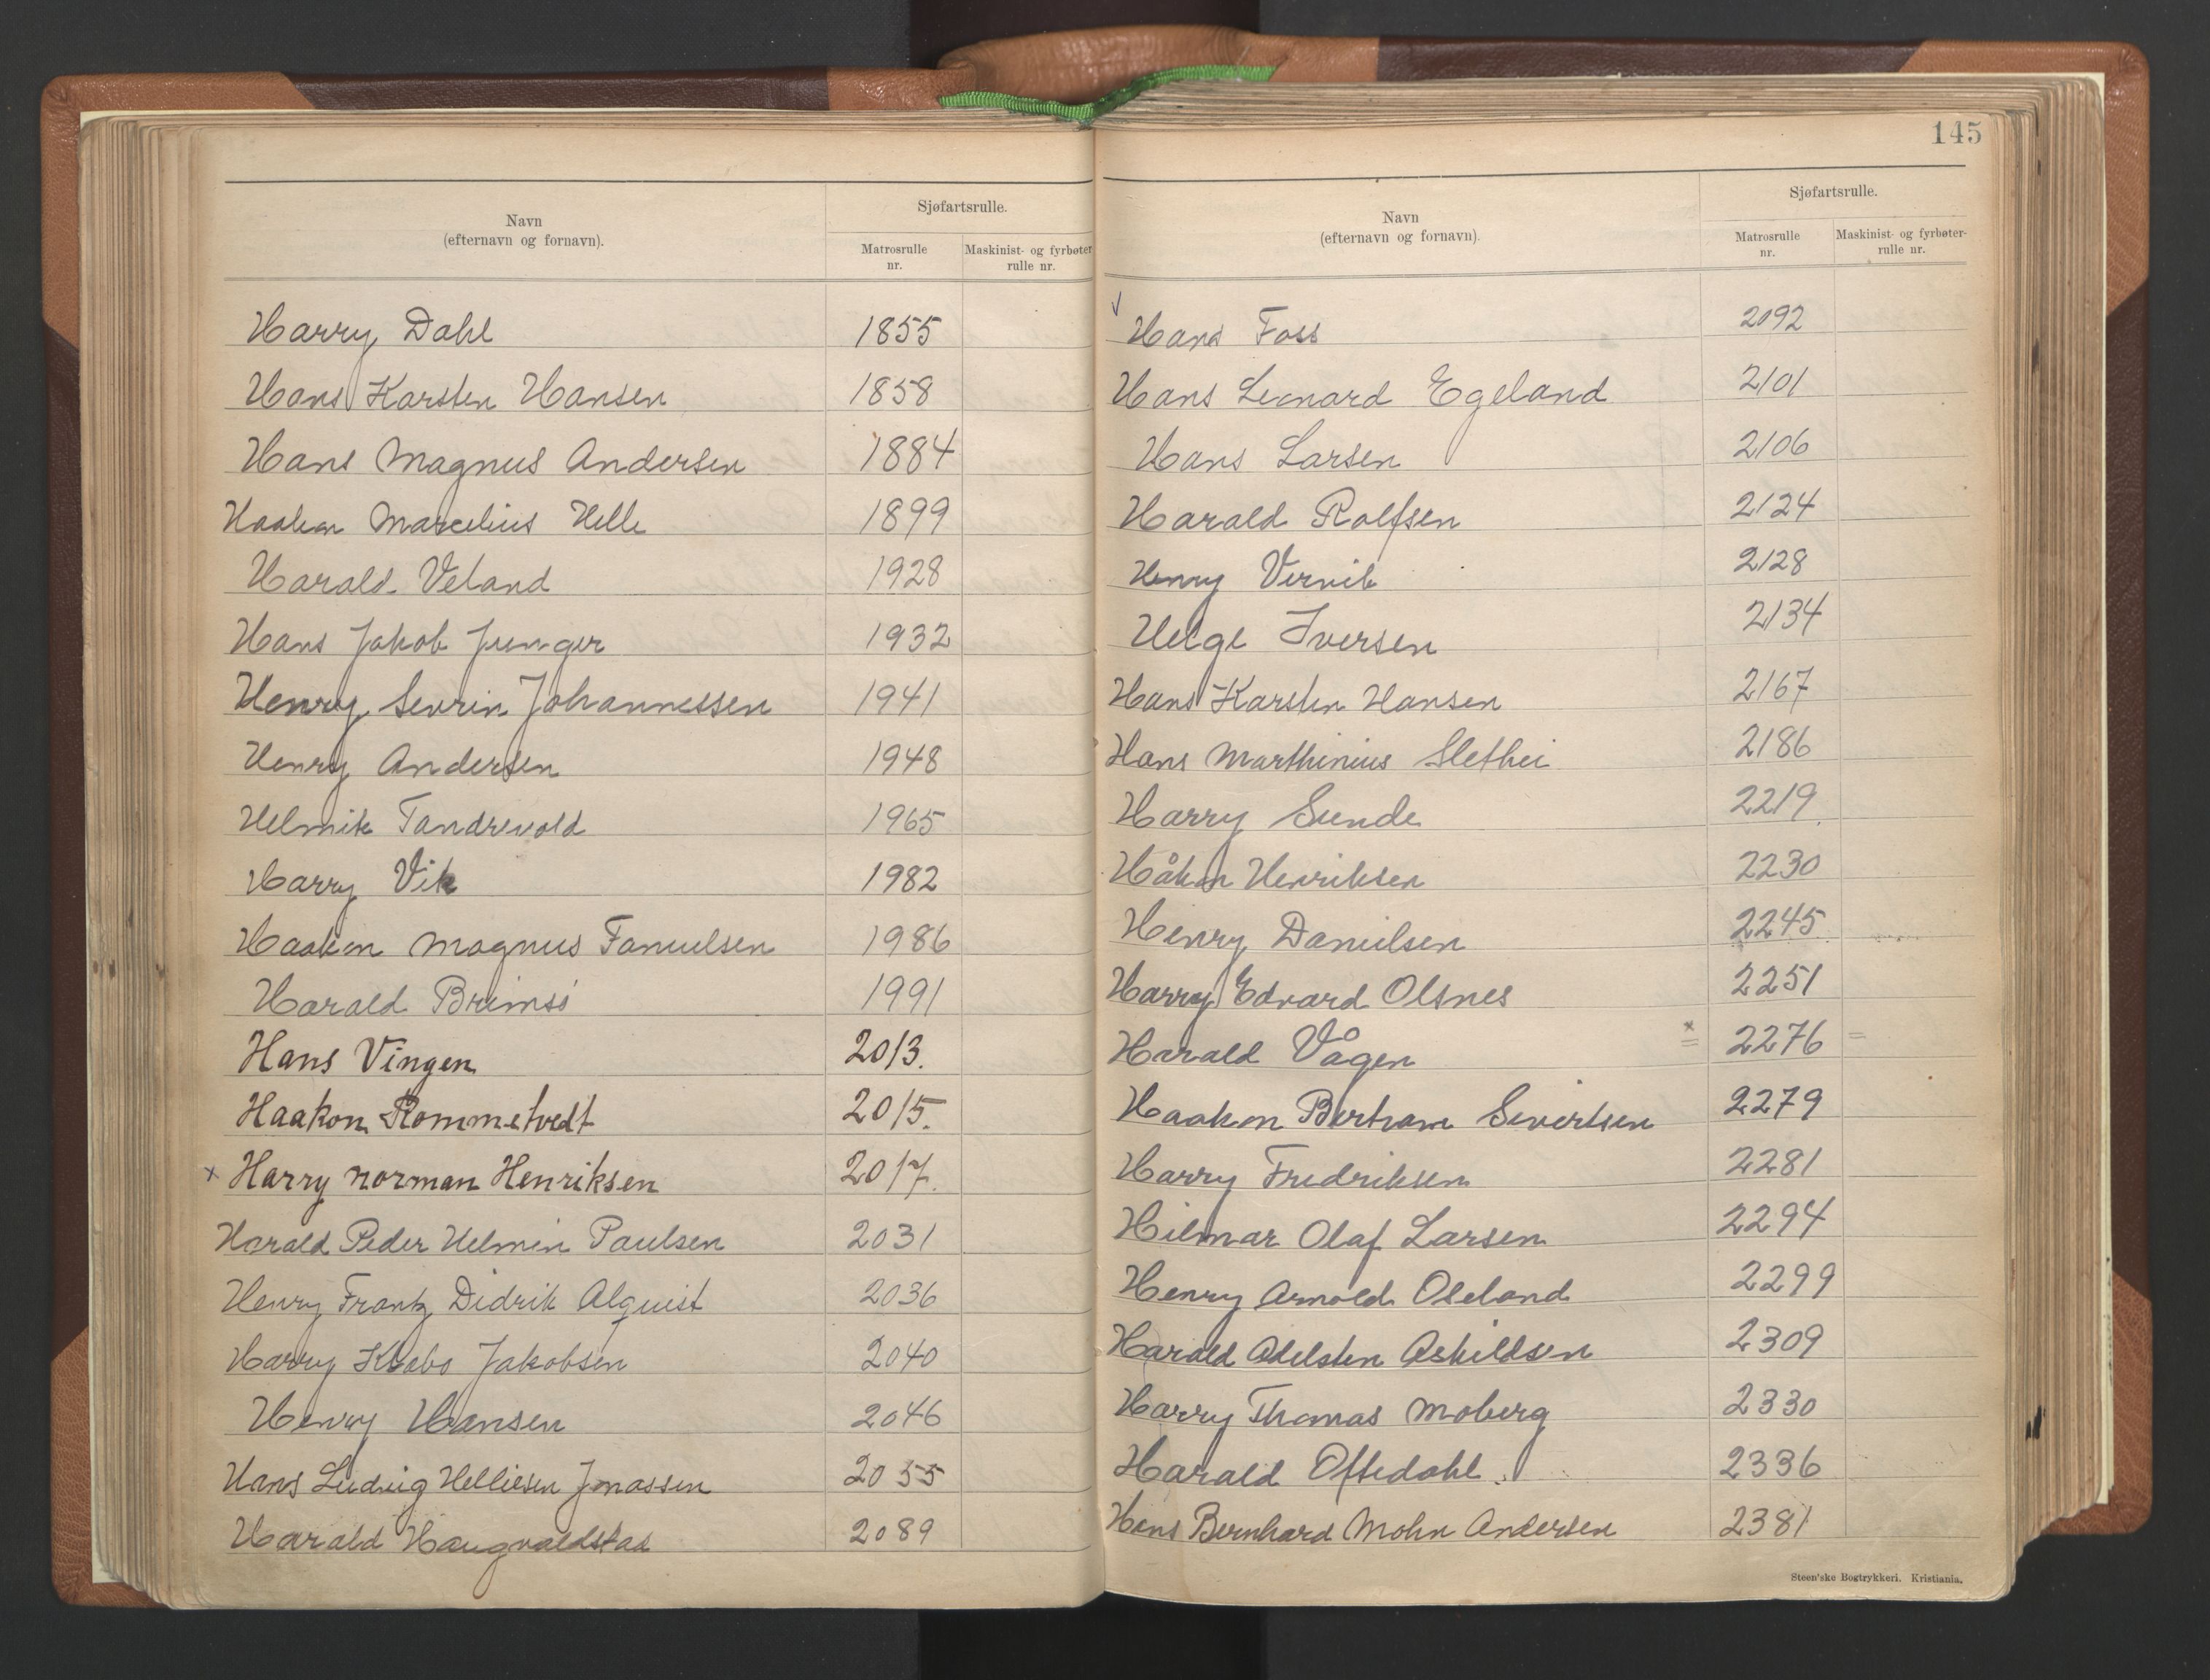 Navn
(efternavn og fornavn).
Sjøfartsrulle.
Matrosrulle
nr.
Maskinist- og fyrbøter
rulle nr.
Harry Dahl 1855
Hans Karsten Hansen 1858
Hans Magnus Andersen 1884
Haakon Marcelius Helle 1899
Harald Veland 1928
Hans Jakob Junger 1932
Henry Sevrin Johannessen 1941
Henry Andersen 1948
Helmik Tandrevold 1965
Harry Vik 1982
Haakon Magnus Samuelsen 1986
Harald Brimsø 1991
Hans Vingen 2013.
Haakon Rommetvedt 2015.
x Harry Norman Henriksen 2017.
Harald Peder Helmin Paulsen 2031
Henry Frantz Didrik Alquist 2036
Harry Krabo Jakobsen 2040
Henry Hansen 2046
Hans Ludvig Helliesen Jonassen 2055
Harald Haugvaldstad 2089
145
Navn
(efternavn og fornavn).
Sjøfartsrulle.
Matrosrulle
nr.
Maskinist- og fyrbøter-
rulle nr.
Hans Foss 2092
Hans Leonard Egeland 2101
Hans Larsen 2106
Harald Rolfsen 2124
Henry Vervik 2128
Helge Iversen 2134
Hans Karsten Hansen 2167
Hans Marthinius Slethei 2186
Harry Sunde 2219
Håkon Henriksen 2230
Henry Danielsen 2245
Harry Edvard Olsnes 2251
Harald Vågen x = 2276 =
Haakon Bertram Sivertsen 2279
Harry Fredriksen 2281
Hilmar Olaf Larsen 2294
Henry Arnold Oseland 2299
Harald Adelsten Askildsen 2309
Harry Thomas Moberg 2330
Harald Oftedahl. 2336
Hans Bernhard Mohn Andersen 2381
Steen'ske Bogtrykkeri. Kristiania.